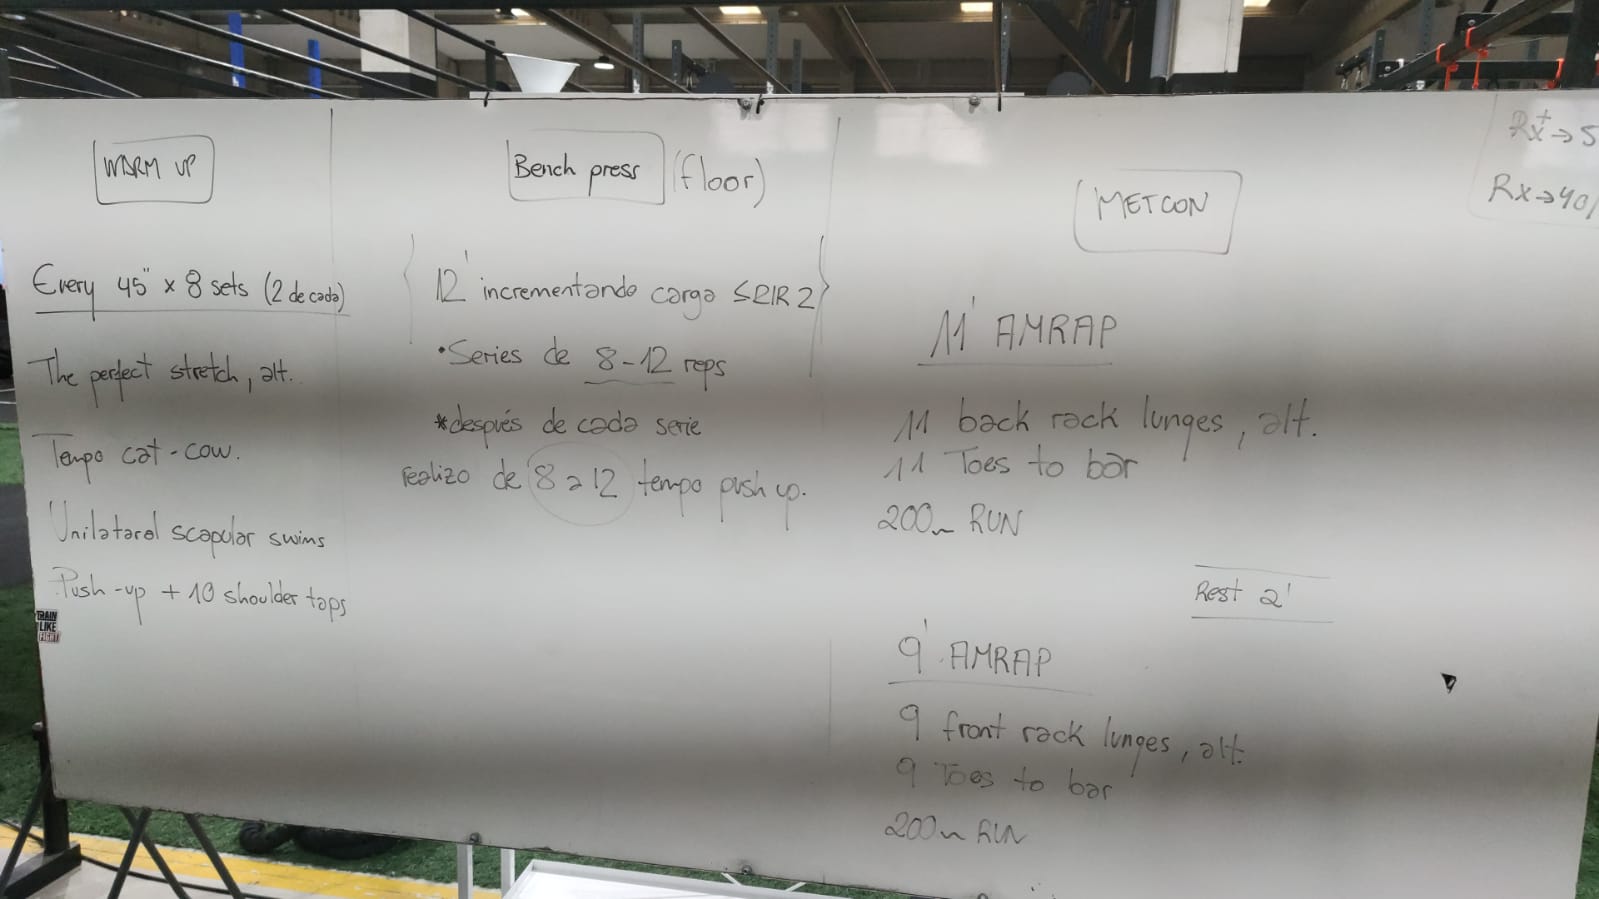 WARM UP
Every 45" x 8 sets (2 de cada)
The perfect stretch, alt.
Tempo cat-cow.
Unilateral scapular swims
Push-up + 10 shoulder taps
TRAIN
LIKE
FIGHT
Bench press (floor)
12' incrementando carga ≤RIR 2
•Series de 8-12 reps
*después de cada serie
realizo de 8 a 12 tempo push up.
METCON
11' AMRAP
11 back rack lunges, alt.
11 Toes to bar
200m RUN
Rest 2'
9' AMRAP
9 front rack lunges, alt.
9 Toes to bar
200m RUN
Rx+→5
Rx→40/